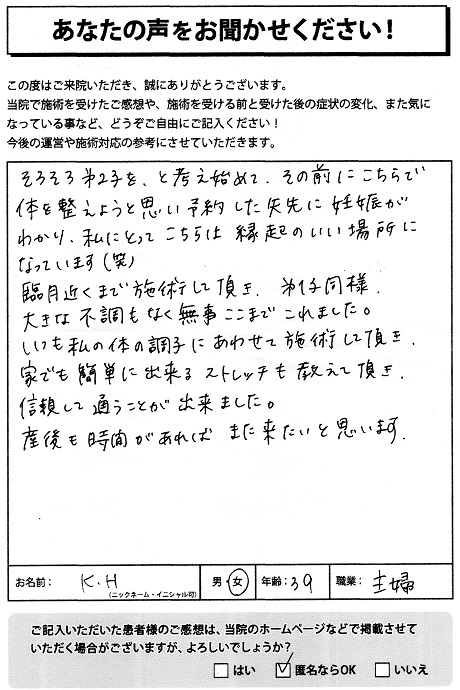 あなたの声をお聞かせください!
この度はご来院いただき、誠にありがとうございます。
当院で施術を受けたご感想や、施術を受ける前と受けた後の症状の変化、また気に
なっている事など、どうぞご自由にご記入ください!
今後の運営や施術対応の参考にさせていただきます。
そろそろ第2子を、と考え始めて、その前にこちらで
体を整えようと思い予約した矢先に妊娠が
わかり、私にとってこちらは縁起のいい場所に
なっています(笑)
臨月近くまで施術して頂き、第1子同様、
大きな不調もなく無事ここまでこれました。
いつも私の体の調子にあわせて施術して頂き、
家でも簡単に出来るストレッチも教えて頂き、
信頼して通うことが出来ました。
産後も時間があればまた来たいと思います。
お名前: K.H (ニックネーム・イニシャル可) 男・女 年齢:39 職業: 主婦
ご記入いただいた患者様のご感想は、当院のホームページなどで掲載させて
いただく場合がございますが、よろしいでしょうか?
□はい ☑匿名ならOK □いいえ